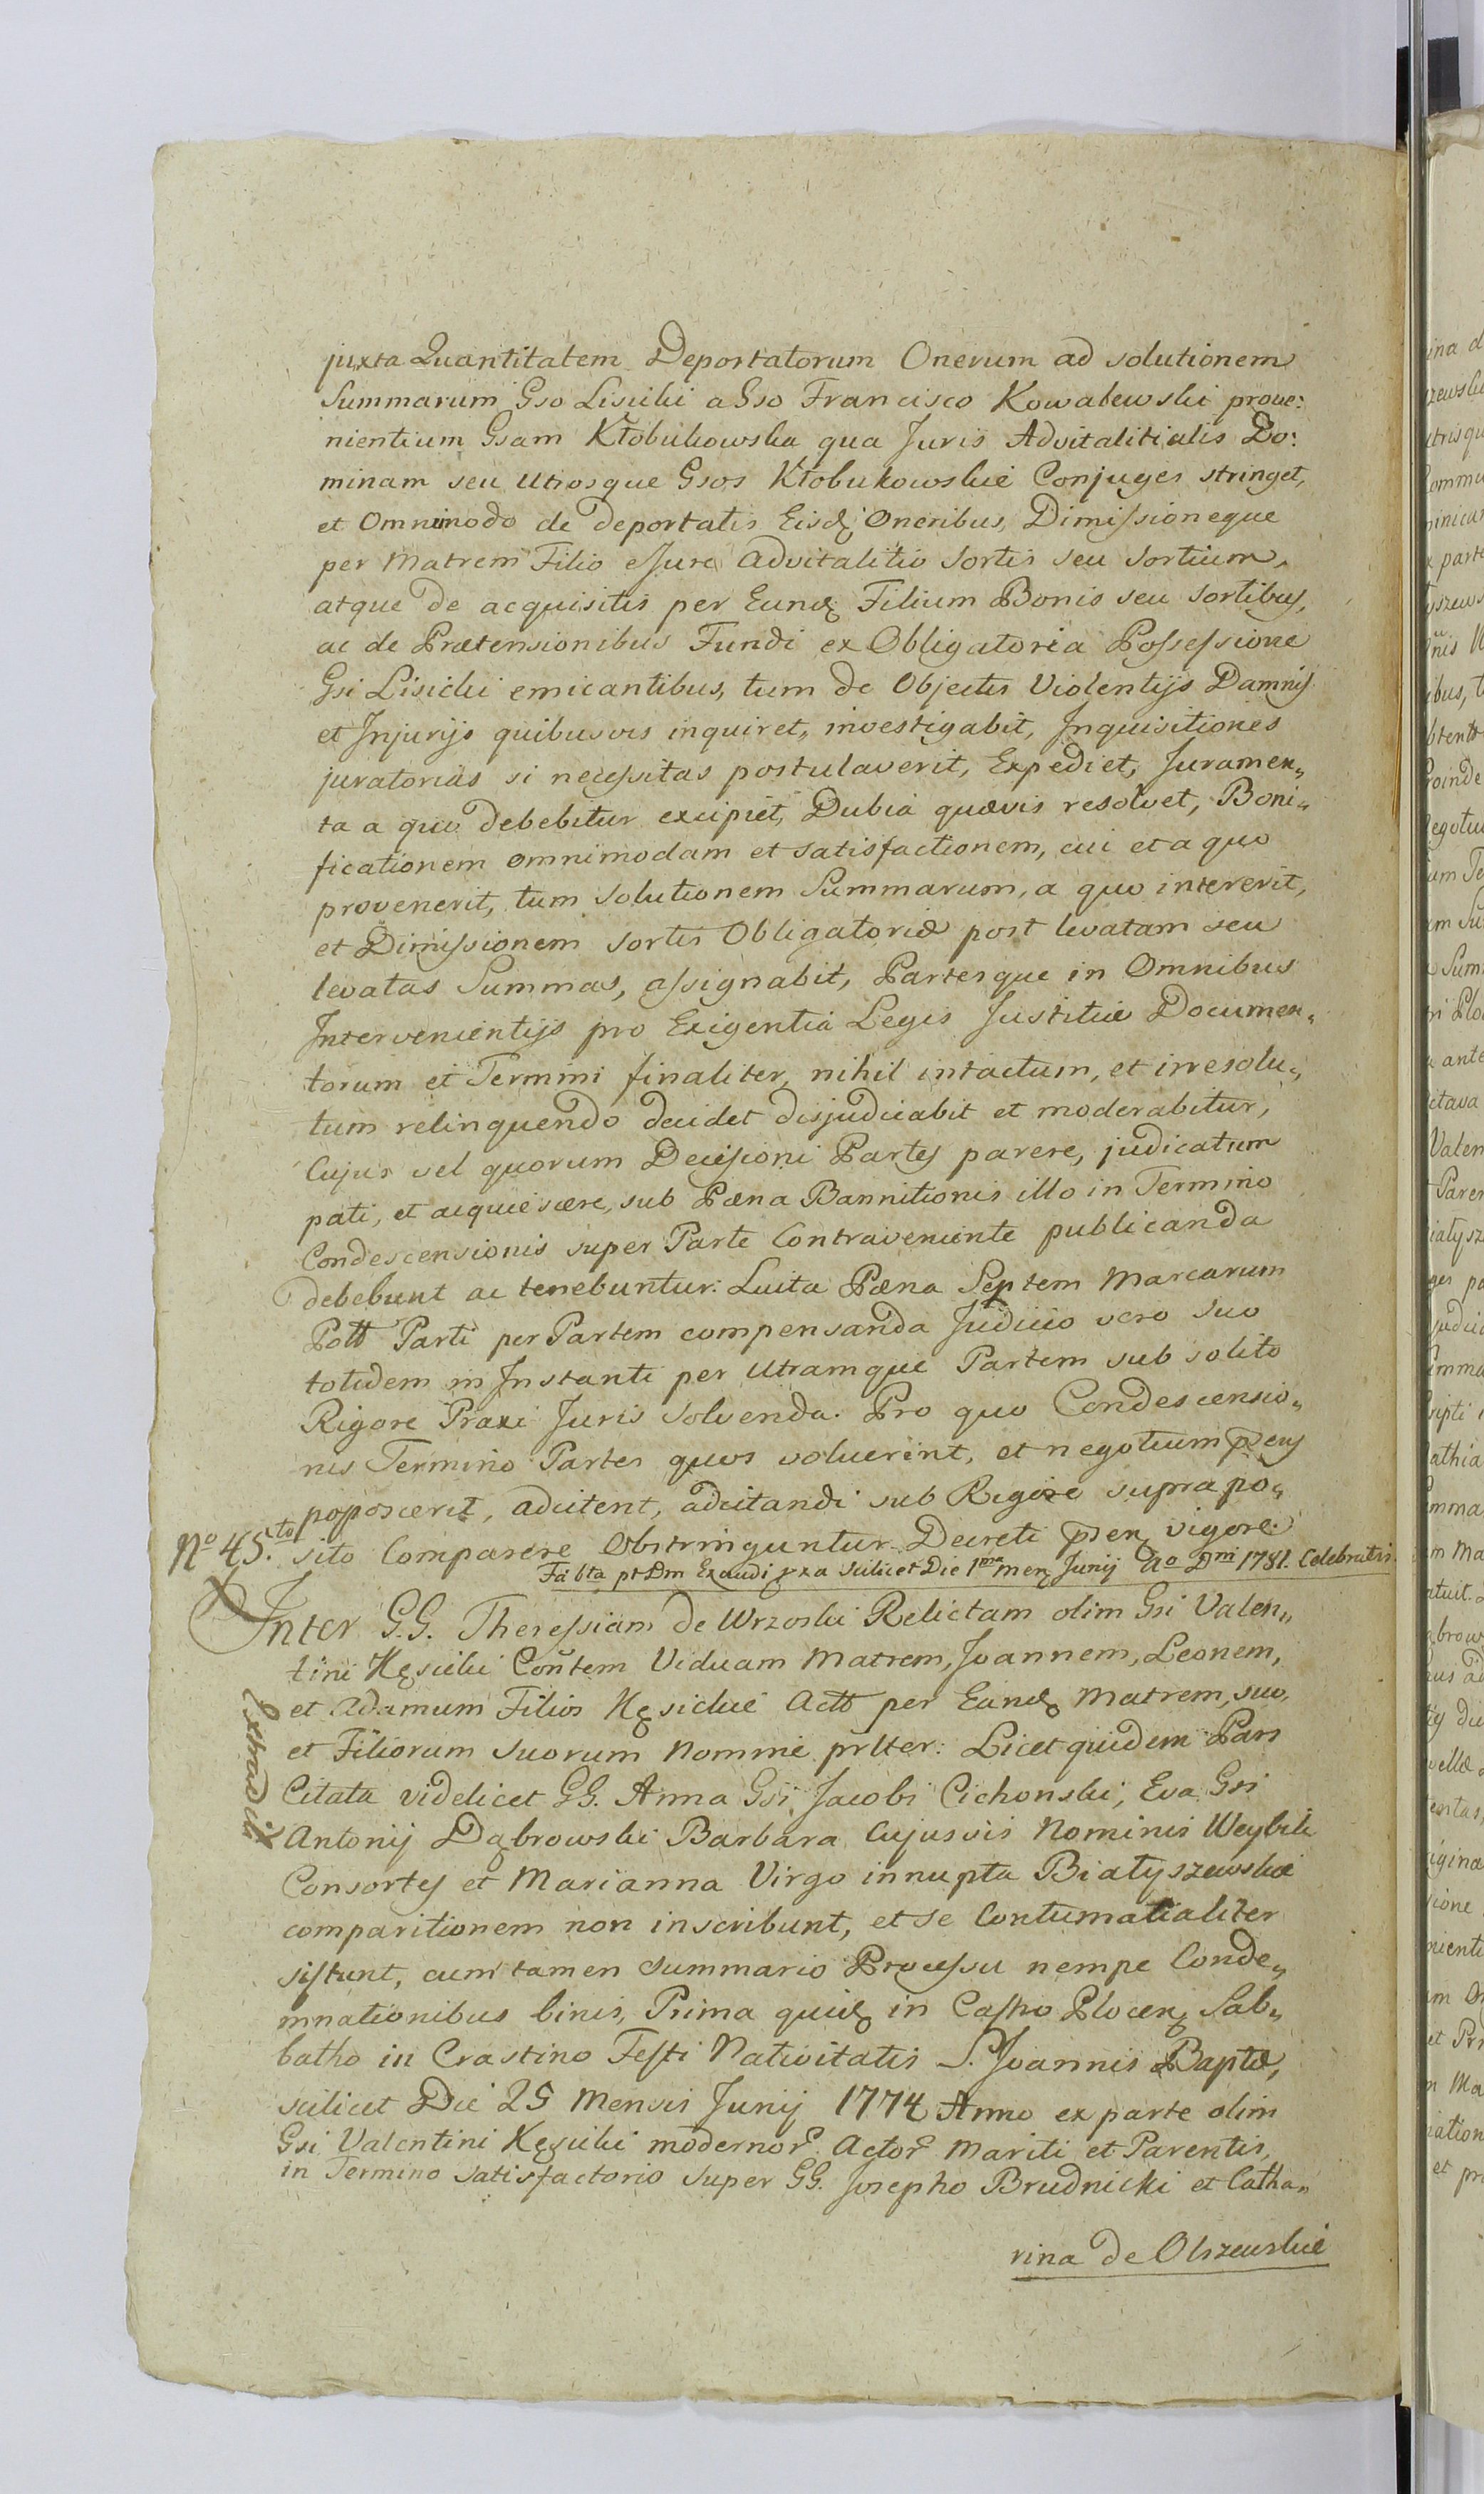 juxta Quantitatem Deportatorum Onerum ad solutionem
Summarum Gso Lisicki a Gso Francisco Kowalewski prove:
nientium Gsam Kłobukowska qua Juris Advitalitialis Do:
minam seu utrosque Gsos Kłobukowskie Conjuges stringet,
et Omnimodo de deportatis Eisdę Oneribus, Dimissioneque
per Matrem Filio e Jure Advitalitio Sortis seu Sortium,
atque de acquisitis per Eundę Filium Bonis seu Sortibus,
ac de Prætensionibus Fundi ex Obligatoria Possessione
Gsi Lisicki emicantibus, tum de Objectis Violentijs Damnis
et Injurijs quibusvis inquiret, investigabit, Inquisitiones
juratorias si necessitas postulaverit, Expediet, Juramen„
ta a quo debebitur excipiet, Dubia quævis resolvet, Boni„
ficationem omnimodam et satisfactionem, cui et a quo
provenerit, tum solutionem Summarum, a quo intererit,
et Dimissionem sortis Obligatoriæ post levatam seu
levatas Summas, assignabit, Partesque in Omnibus
Intervenientijs pro Exigentia Legis Justitiæ Documen„
torum et Termini finaliter, nihil intactum, et irresolu„
tum relinquendo decidet disjudicabit et moderabitur,
Cujus vel quorum Decisioni Partes parere, judicatum
pati, et acquiescere, sub Pæna Bannitionis illo in Termino
Condescensionis super Parte Contraveniente publicanda
debebunt ac tenebuntur. Luita Pæna Septem Marcarum
Poll Parti per Partem compensanda Judicio vero suo
totidem in Instanti per Utramque Partem sub solito
Rigore Praxi Juris Solvenda. Pro quo Condescensio„
nis Termino Partes quos voluerint, et negotium pñs
poposcerit, adcitent, adcitandi sub Rigore suprapo„
sito Comparere Obstringuntur Decreti pñtę vigore.
Nº 45.to
Fa 6ta pt Dm Exaudi scilicet Die 1ma menę Junij Ao Dni 1781. Celebratis
Inter G.G. Theressiam de Wrzoski Relictam olim Gsi Valen„
tini Kęsicki Coñtem Viduam Matrem, Joannem, Leonem,
et Adamum Filios Kęsickie Actt per Eandę Matrem, suo
et Filiorum Suorum Nomine prlter: Licet quidem Pars
Extradit
Citata videlicet GG. Anna Gsi Jacobi Cichonski, Eva Gsi
Antonij Dąbrowski Barbara Cujusvis Nominis Weybek
Consortes et Marianna Virgo innupta Białyszewskie
comparitionem non inscribunt, et se Contumatialiter
sistunt, cum tamen Summario Processu nempe Conde„
mnationibus binis, Prima quidę in Castro Plocenę Sab„
batho in Crastino Festi Nativitatis S. Joannis Baptæ,
scilicet Die 25 Mensis Junij 1774 Anno ex parte olim
Gsi Valentini Kęsicki modernor Actor Mariti et Parentis,
in Termino Satisfactorio super GG. Josepho Brudnicki et Catha„
rina de Olszewskie